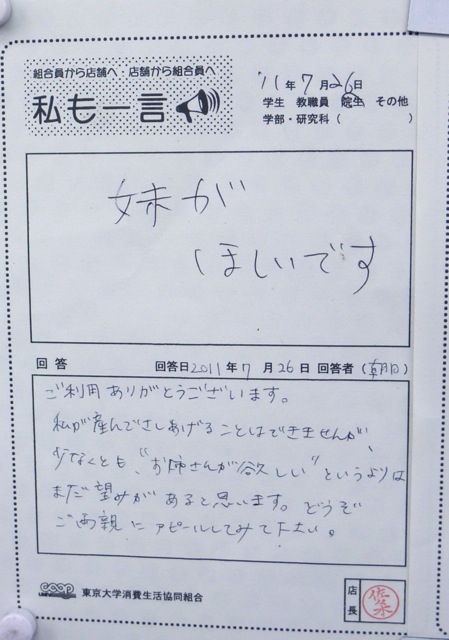 組合員から店舗へ・店舗から組合員へ
私も一言
'11年7月26日
学生 教職員 院生 その他
学部・研究科( )
妹が
ほしいです
回答 回答日2011年7月26日 回答者(朝日)
ご利用ありがとうございます。
私が産んでさしあげることはできませんが、
少なくとも、"お姉さんが欲しい"というよりは
まだ望みがあると思います。どうぞ
ご両親にアピールしてみて下さい。
coop 東京大学消費生活協同組合
店長